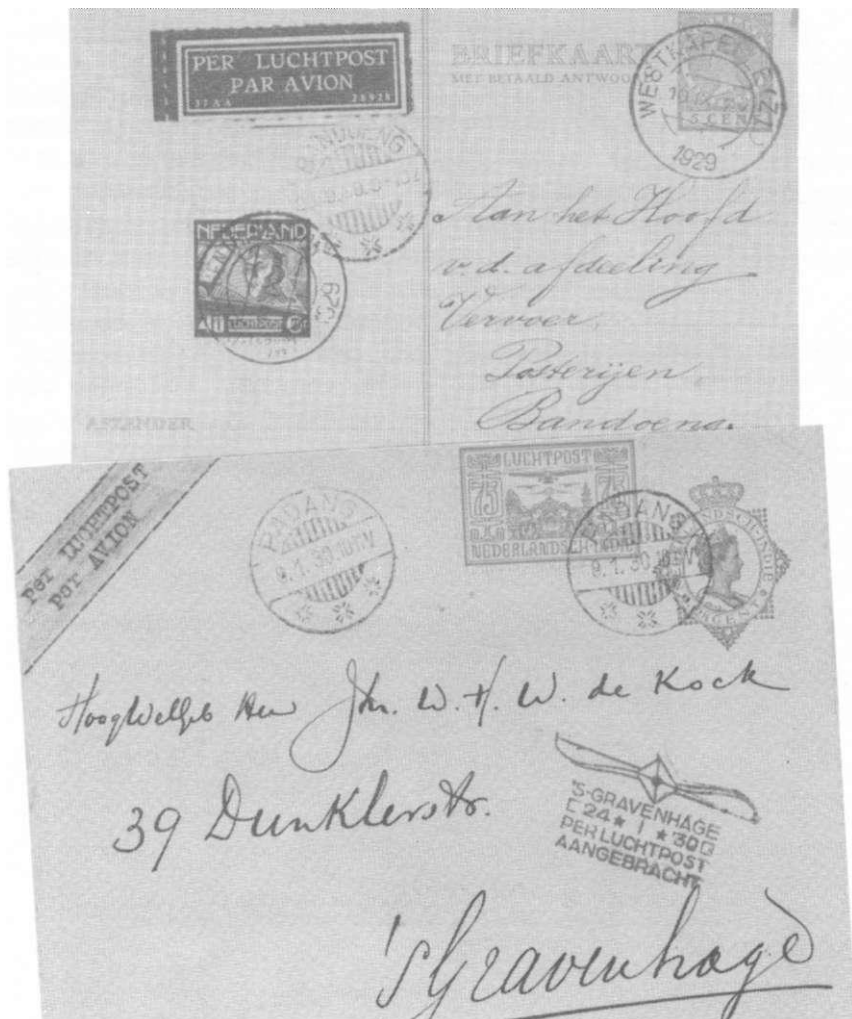 PER LUCHTPOST
PAR AVION
BRIEFKAART
MET BETAALD ANTWOORD
WESTKAPELLE (Z)
5 CENT
1929
BANDOENG
NEDERLAND
LUCHTPOST
Aan het Hoofd
v. d. afdeeling
Vervoer,
Posterijen,
Bandoeng.
AFZENDER
Per LUCHTPOST
par AVION
PADANG
9.1.30.10 N.V
LUCHTPOST
75 75
NEDERLANDSCH-INDIE
PADANG
9.1.30.10 N.V
NEDERLANDSCH-INDIE
HoogWelgeb Heer Jhr. W. H. W. de Kock
39 Dunklerstr.
'S-GRAVENHAGE
24 ★ I ★ '30
PER LUCHTPOST
AANGEBRACHT
'sGravenhage